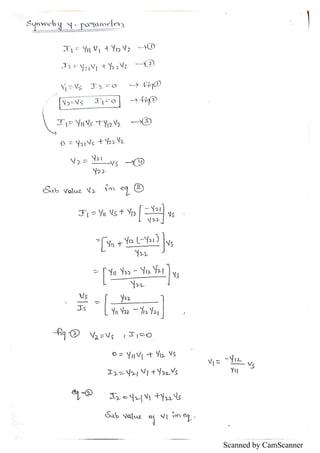 Symmetry y-parameters
I1 = y11 V1 + y12 V2 → ①
I2 = y21 V1 + y22 V2 → ②
V1 = Vs I2 = 0 → fig①
V2 = Vs I1 = 0 → fig②
I1 = y11 Vs + y12 V2 → ③
0 = y21 Vs + y22 V2
V2 = y21/y22 Vs → ④
Sub value V2 in eq ③
I1 = y11 Vs + y12 [-y21/y22] Vs
= [y11 + y12 (-y21)/y22] Vs
= [y11 y22 - y12 y21/y22] Vs
Vs/Is = [y22/y11 y22 - y12 y21]
fig ② V2 = Vs , I1 = 0
0 = y11 V1 + y12 Vs
V1 = -y12/y11 Vs
I2 = y21 V1 + y22 Vs
eq-② I2 = y21 V1 + y22 Vs
Sub value of V1 in eq.
Scanned by CamScanner